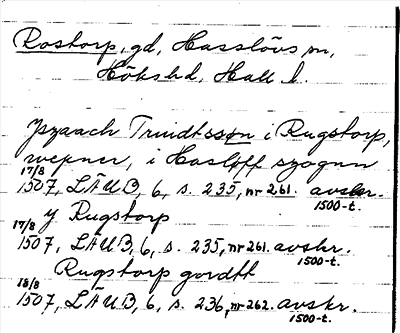 Rostorp, gd, Hasslövs sn,
Höks hd, Hall. l.
Yszaach Truidtssøn i Rugstorp,
wepner, i Hasløff szognn
17/8 1507, LÄUB, 6, s. 235, nr 261. avskr. 1500-t.
y Rugstorp
17/8 1507, LÄUB, 6, s. 235, nr 261. avskr. 1500-t.
Rugstorp gordtt
18/8 1507, LÄUB, 6, s. 236, nr 262. avskr. 1500-t.